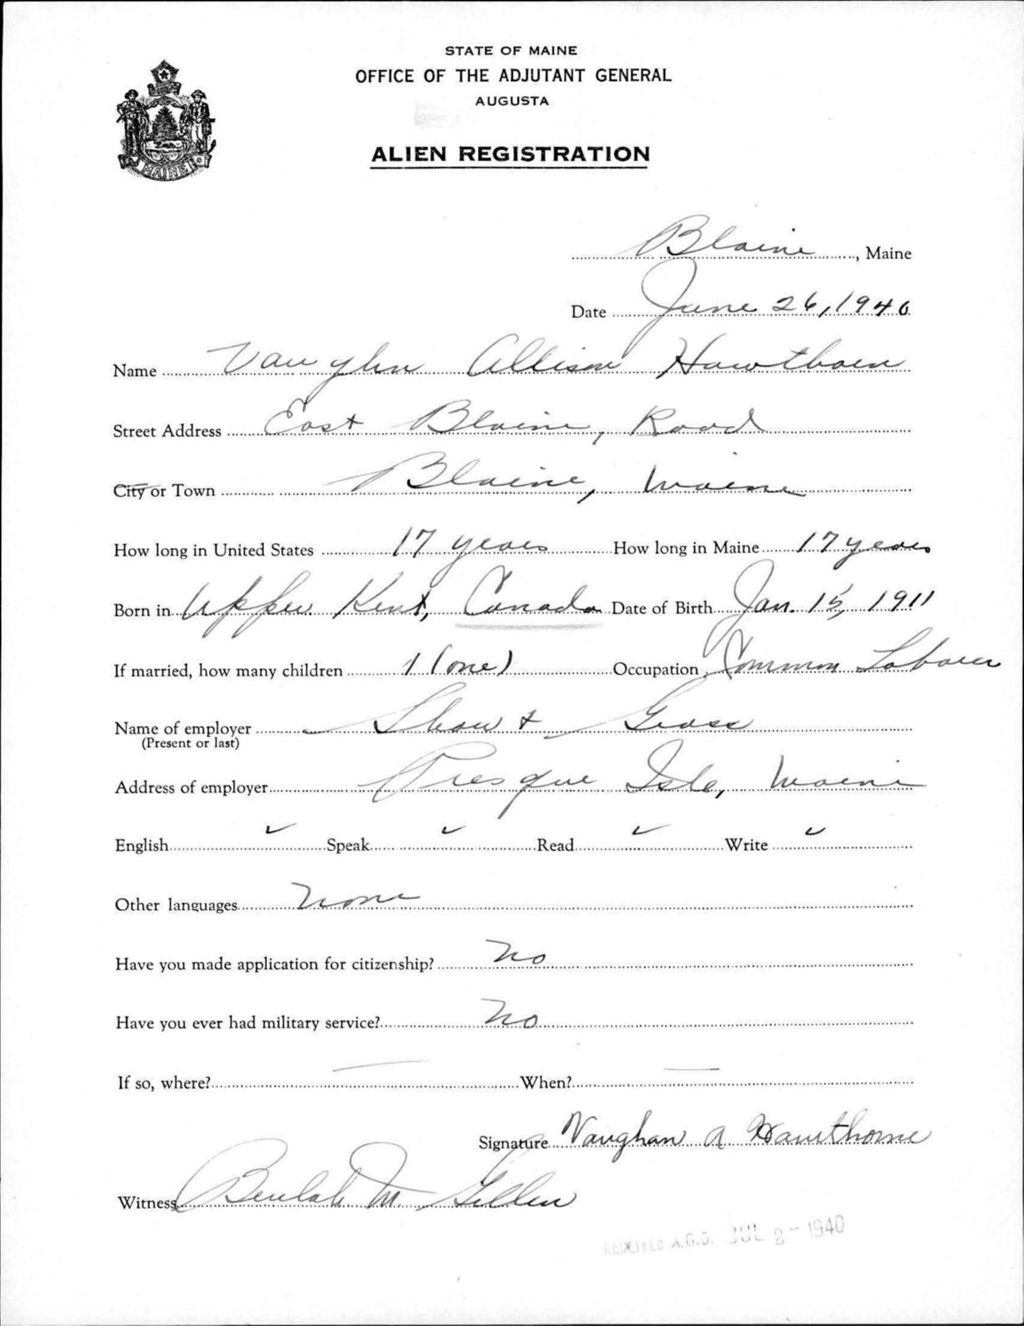 STATE OF MAINE
OFFICE OF THE ADJUTANT GENERAL
AUGUSTA
ALIEN REGISTRATION
MAINE
Blaine, Maine
Date June 26, 1940
Name Vaughn Allison Hawthorn
Street Address East Blaine, Road
City or Town Blaine, Maine
How long in United States 17 years How long in Maine 17 years
Born in Upper Kent, Canada Date of Birth Jan. 15, 1911
If married, how many children 1 (one) Occupation Common Laborer
Name of employer Shaw &
(Present or last)
Address of employer Presque Isle, Maine
English ✓ Speak ✓ Read ✓ Write ✓
Other languages None
Have you made application for citizenship? No
Have you ever had military service? No
If so, where? — When? —
Signature Vaughan A Hawthorne
Witness Beulah M. Gillen
RECEIVED A.G.O. JUL 2 - 1940